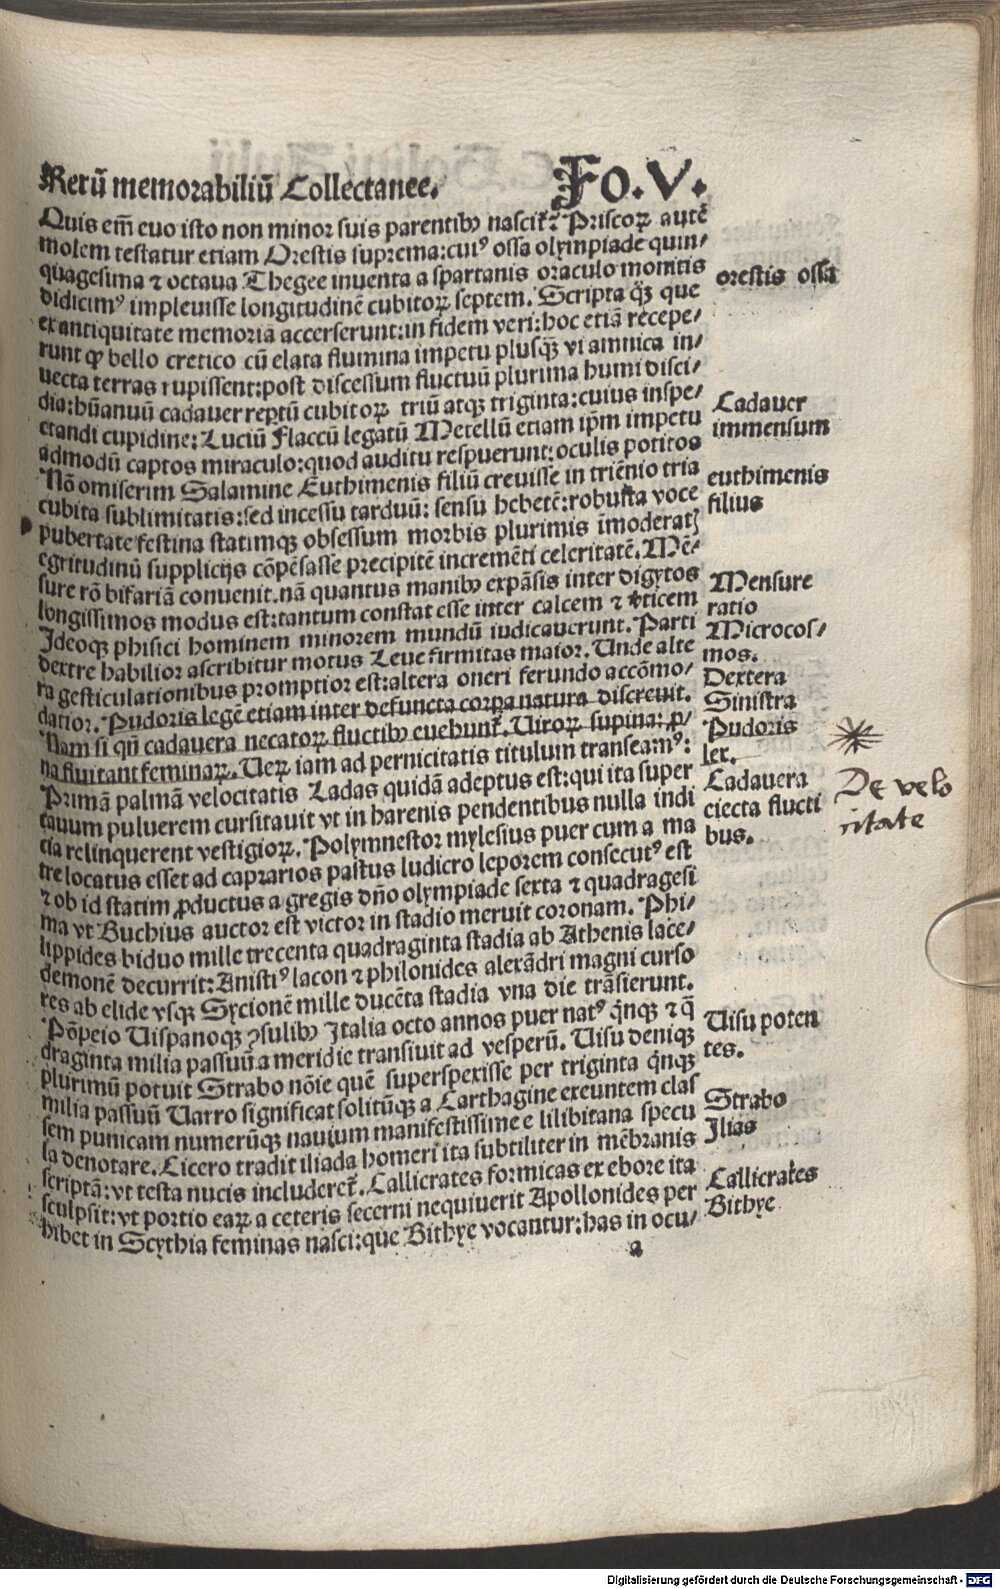 Rerū memorabiliū Collectanee.
Fo. V.
Quis em̄ euo isto non minor suis parentibꝰ nascit̄? Priscoꝝ autē
molem testatur etiam Orestis suprema: cuiꝰ ossa olympiade quin/
quagesima ⁊ octaua Thegee inuenta a spartanis oraculo monitis
didicimꝰ impleuisse longitudinē cubitoꝝ septem. Scripta qͦꝫ que
ex antiquitate memoriā accerserunt: in fidem veri: hoc etiā recepe/
runt ꝙ bello cretico cū elata flumina impetu plusqꝫ vi amnica in/
uecta terras rupissent: post discessum fluctuū plurima humi disci/
dia: hūanuū cadauer reptū cubitoꝝ triū atqꝫ triginta: cuius inspe/
ctandi cupidine: Luciū Flaccū legatū Metellū etiam ip̄m impetu
admodū captos miraculo: quod auditu respuerunt: oculis potitos
Nō omiserim Salamine Euthimenis filiū creuisse in triēnio tria
cubita sublimitatis: sed incessu tarduū: sensu hebetē: robusta voce
pubertate festina statimqꝫ obsessum morbis plurimis imoderatꝭ
egritudinū supplicijs cōpēsasse precipitē incremēti celeritatē. Mē/
sure rō bifariā conuenit. nā quantus manibꝰ expāsis inter digytos
longissimos modus est: tantum constat esse inter calcem ⁊ v̓ticem
Ideoqꝫ phisici hominem minorem mundū iudicauerunt. Parti
dextre habilior ascribitur motus Leue firmitas maior. Unde alte
ra gesticulationibus promptior est: altera oneri ferundo accōmo/
datior. Pudoris legē etiam inter defuncta corpa natura discreuit.
Nam si qn̄ cadauera necatoꝝ fluctibꝰ euehunt̄. Uiroꝝ supina: ꝓ/
na fluitant feminaꝝ. Ueꝝ iam ad pernicitatis titulum transeamꝰ:
Primā palmā velocitatis Ladas quidā adeptus est: qui ita super
cauum puluerem cursitauit vt in harenis pendentibus nulla indi
cia relinquerent vestigioꝝ. Polymnestor mylesius puer cum a ma
tre locatus esset ad caprarios pastus ludicro leporem consecutꝰ est
⁊ ob id statim ꝓductus a gregis dn̄o olympiade sexta ⁊ quadragesi
ma vt Buchius auctor est victor in stadio meruit coronam. Phi/
lippides biduo mille trecenta quadraginta stadia ab Athenis lace/
demonē decurrit: Anistiꝰ lacon ⁊ philonides alexādri magni curso
res ab elide vsqꝫ Sycionē mille ducēta stadia vna die trāsierunt.
Pōpeio Uispanoqꝫ ꝯsulibꝰ Italia octo annos puer natꝰ qͥnqꝫ ⁊ qͣ
draginta milia passuū a meridie transiuit ad vesperū. Uisu deniqꝫ
plurimū potuit Strabo nōie quē superspexisse per triginta qͥnqꝫ
milia passuū Uarro significat solitūqꝫ a Carthagine exeuntem clas
sem punicam numerūqꝫ nauium manifestissime e lilibitana specu
la denotare. Cicero tradit iliada homeri ita subtiliter in mēbranis
scriptā: vt testa nucis includeret̄. Callicrates formicas ex ebore ita
sculpsit: vt portio eaꝝ a ceteris secerni nequiuerit Apollonides per
hibet in Scythia feminas nasci: que Bithye vocantur: has in ocu/
a
orestis ossa
Cadauer
immensum
euthimenis
filius
Mensure
ratio
Microcos/
mos.
Dextera
Sinistra
Pudoris
lex.
Cadauera
eiecta flucti
bus.
De velo
citate
Uisu poten
tes.
Strabo
Ilias
Callicrates
Bithye
Digitalisierung gefördert durch die Deutsche Forschungsgemeinschaft - DFG